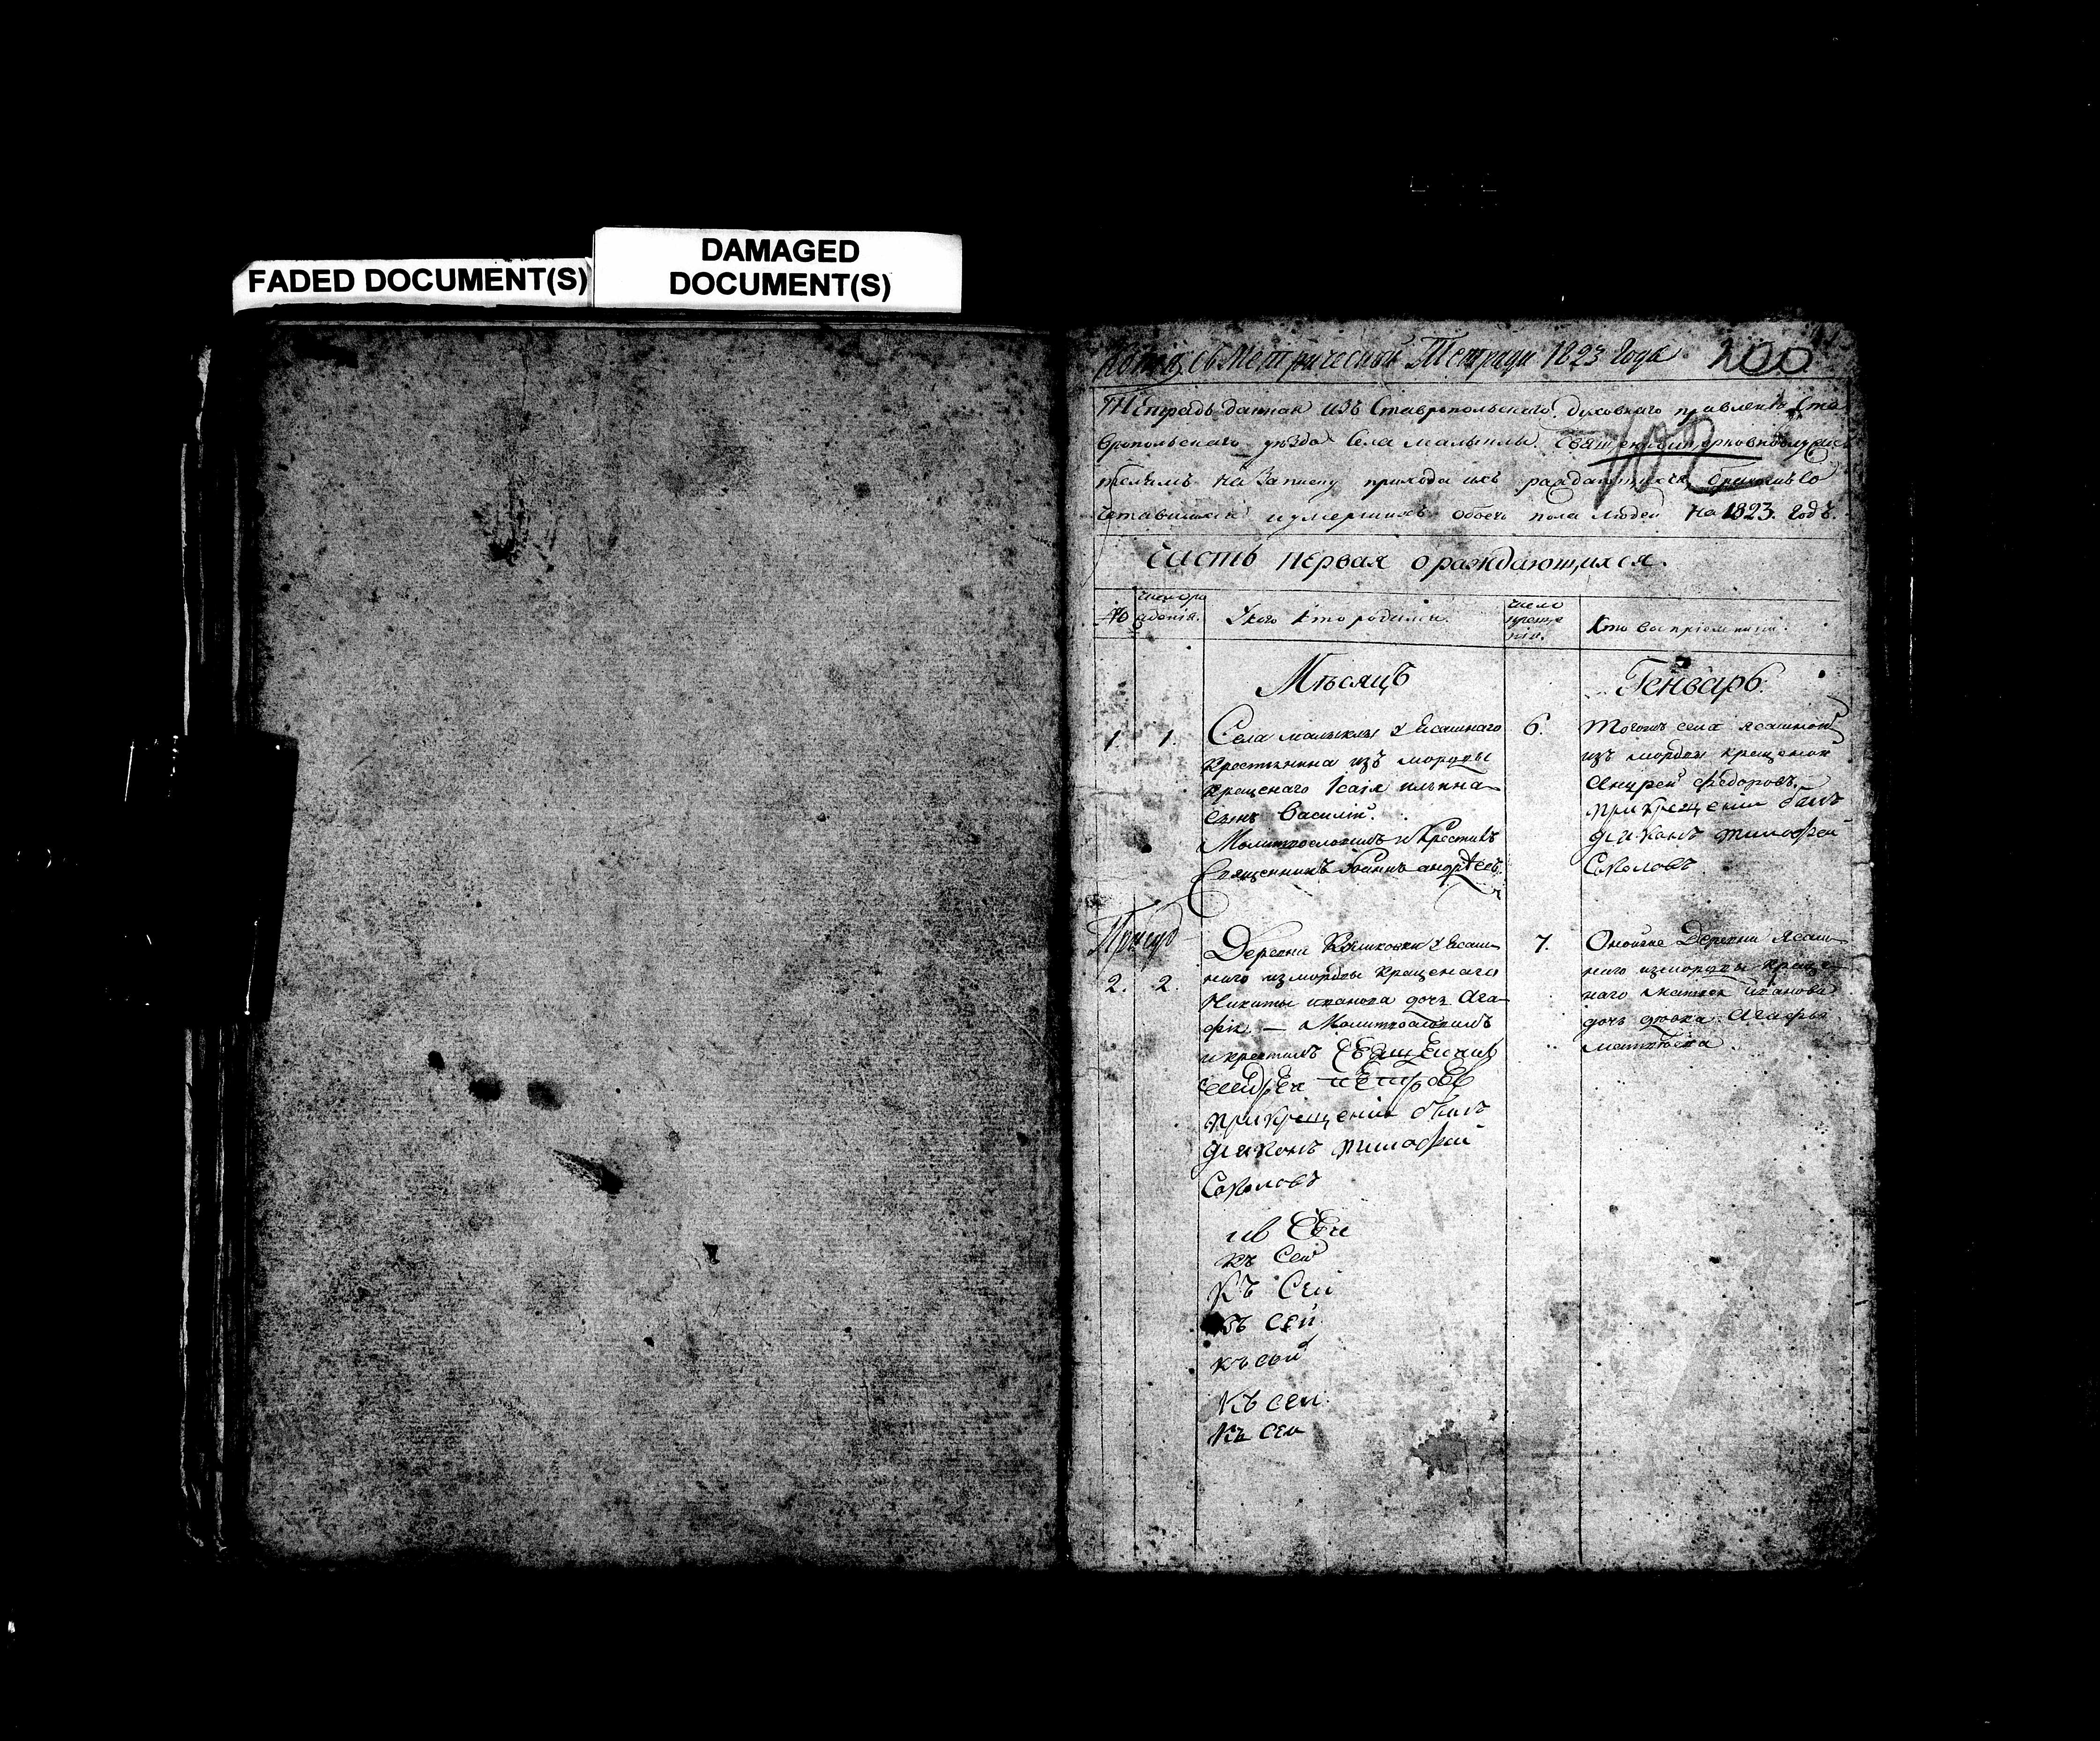 FADED DOCUMENT(S)
DAMAGED
DOCUMENT(S)
съ Метрической Тетради 1823 Года
200
Тетрадь данная изъ Ставропольскаго духовнаго правленiя Ста
вропольскаго уѣзда Села малыклы
телямъ на Записку прихода ихъ раждающихся бракомъ Со
четавшихся и умершихъ обоего пола людей на 1823. Годъ.
102
часть первая о раждающихся.
№
число ро
жденiя.
У кого кто родился.
число
креще
нiя.
Кто воспрiемники.
Мѣсяцъ
Генварь
1.
1.
Села малыклы у Ясашнаго
крестьянина изъ мордвы
крещенаго Iсаiя ильина
сынъ Василiй.
Молитвословилъ и крестилъ
Священникъ Iоаннъ андрѣевъ.
6.
Тогожъ села ясашной
изъ мордвы крещеной
Андрей Федоровъ,
при крещенiи былъ
дiаконъ тимофей
Соколовъ
2.
2.
Деревни у Ясаш
наго изъ мордвы крещенаго
Никиты иванова дочь Ага
фiя — Молитвословилъ
и крестилъ Священникъ
андрей петровъ
при крещенiи былъ
дiаконъ тимофей
Соколовъ
7.
Оной же Деревни Ясаш
наго изъ мордвы креще
наго матвея иванова
дочь девка Агафья
матвѣева
къ Сей
къ Сей
къ сей
къ сей
къ сей
къ сей